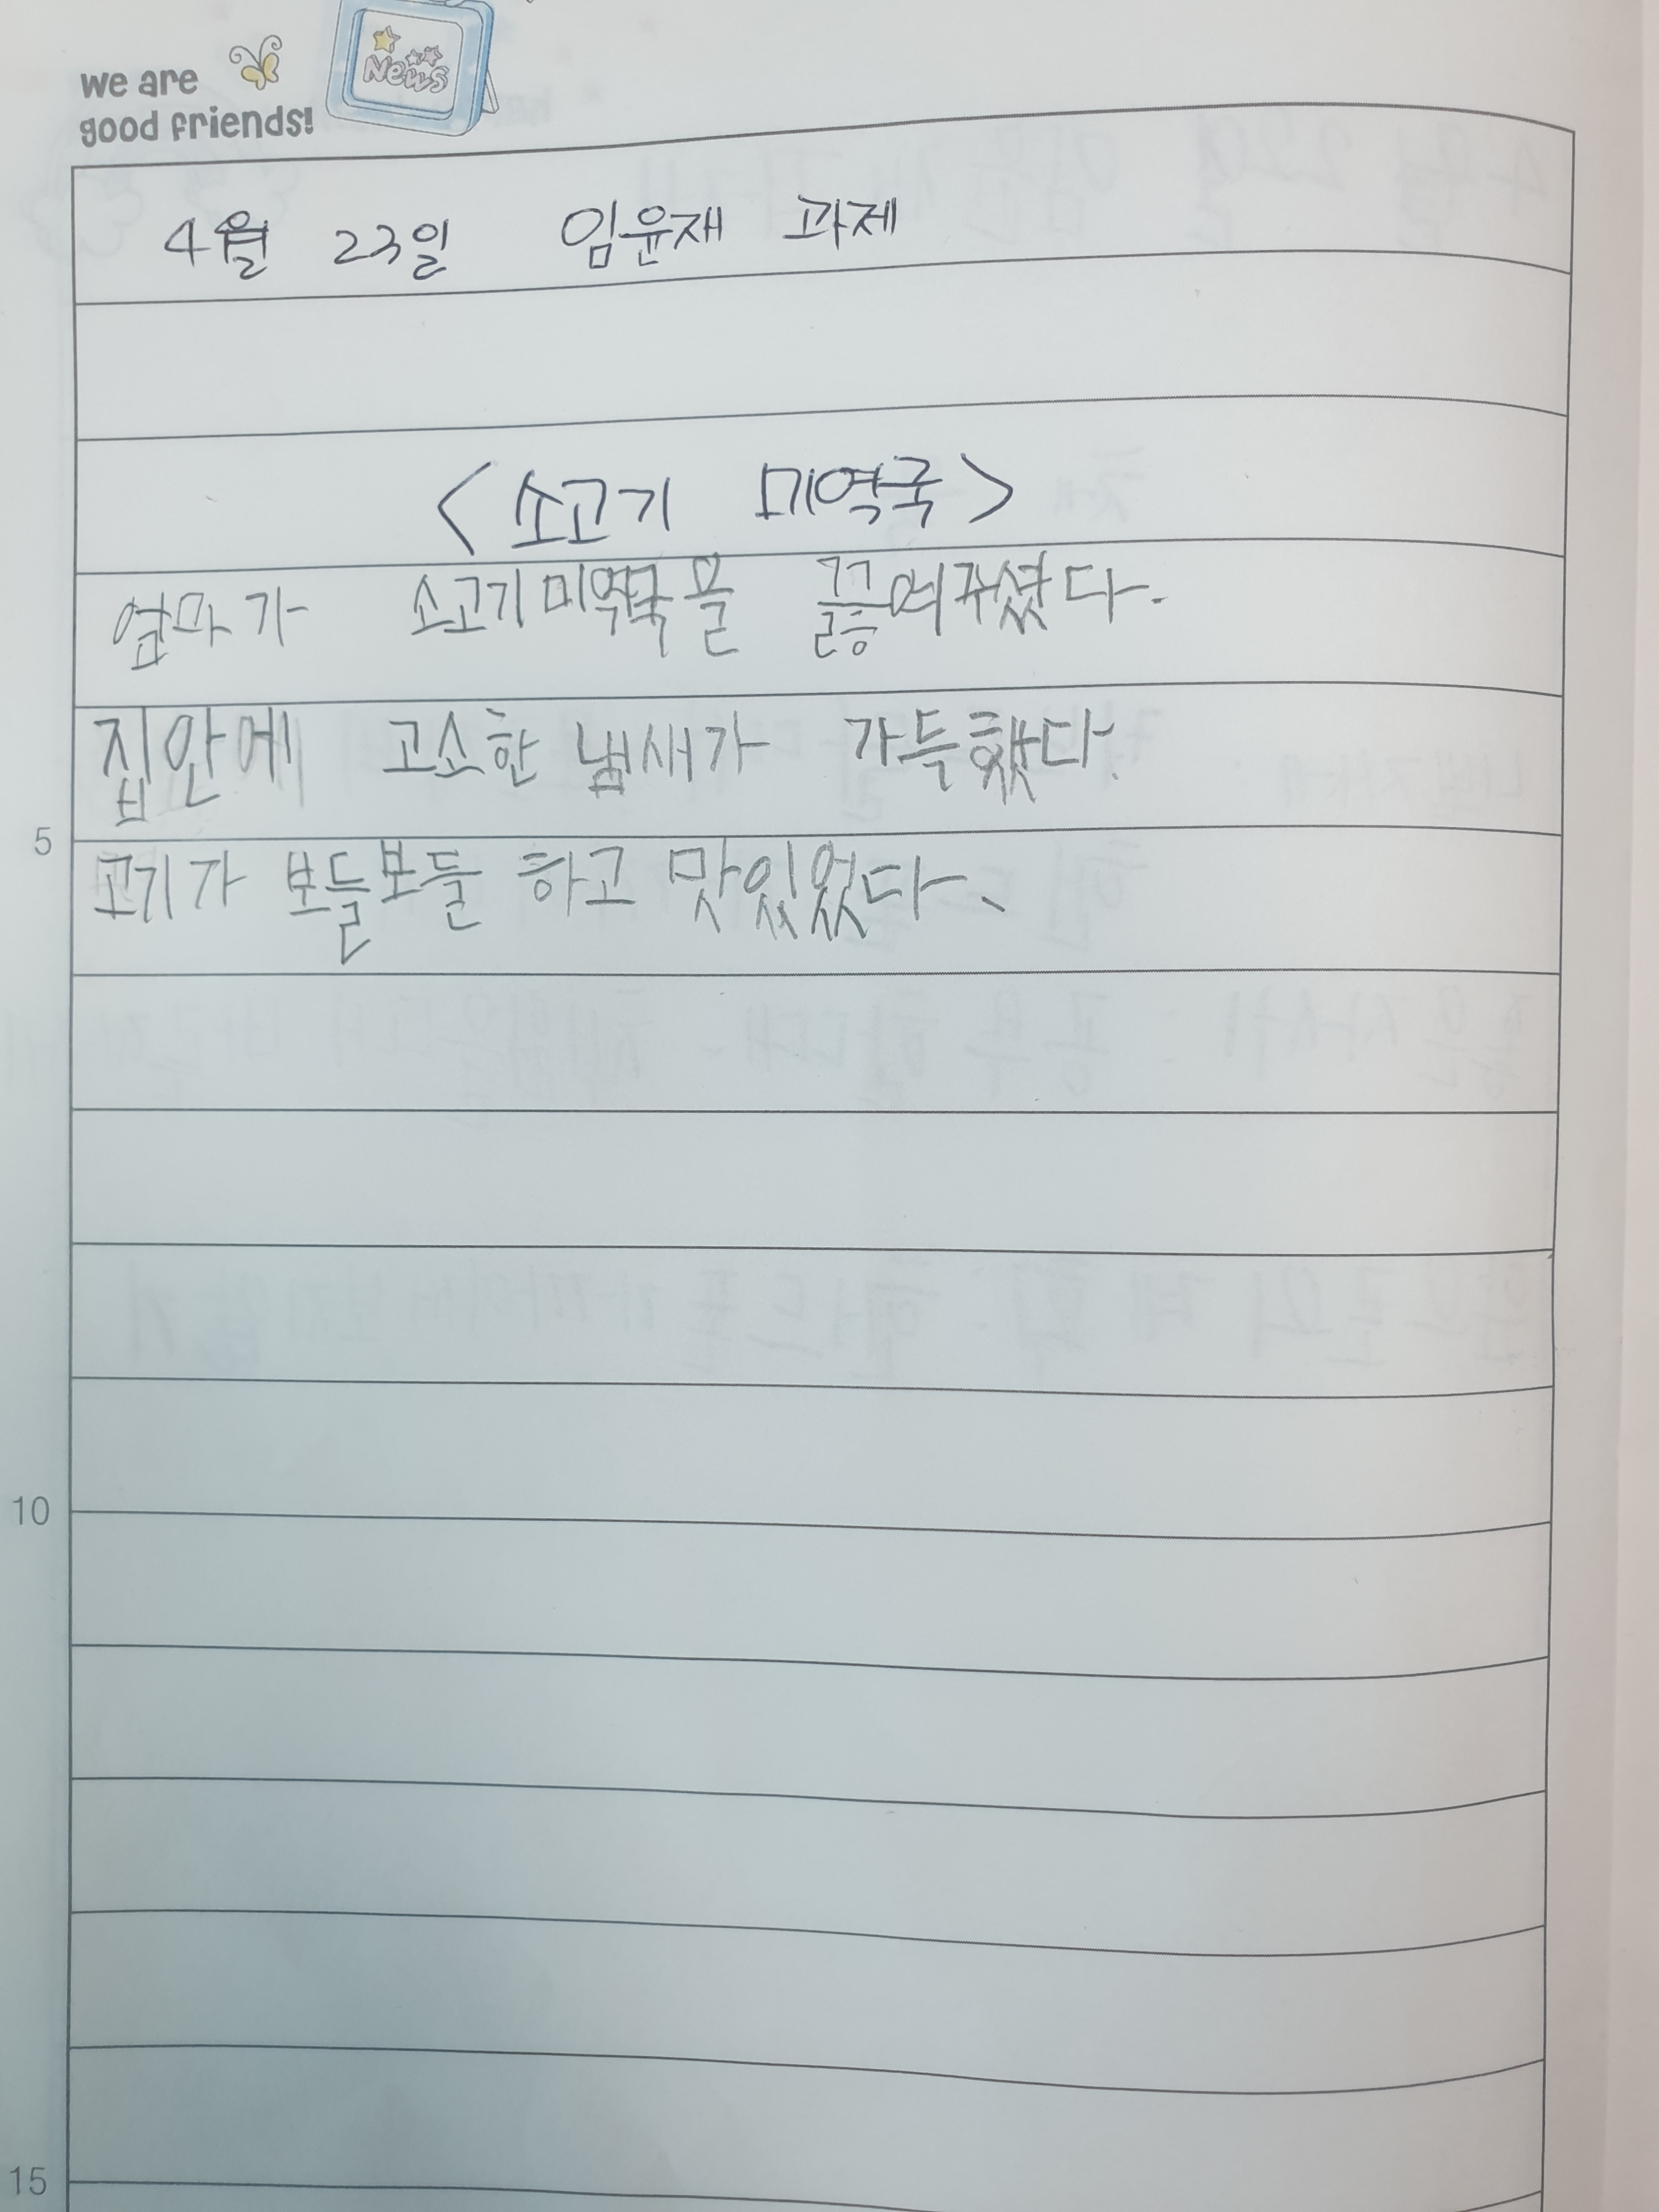 we are
good friends!
News
4월 23일 임윤재 과제
<소고기 미역국>
엄마가 소고기미역국을 끓여주셨다.
집안에 고소한 냄새가 가득했다.
고기가 보들보들 하고 맛있었다.
5
10
15